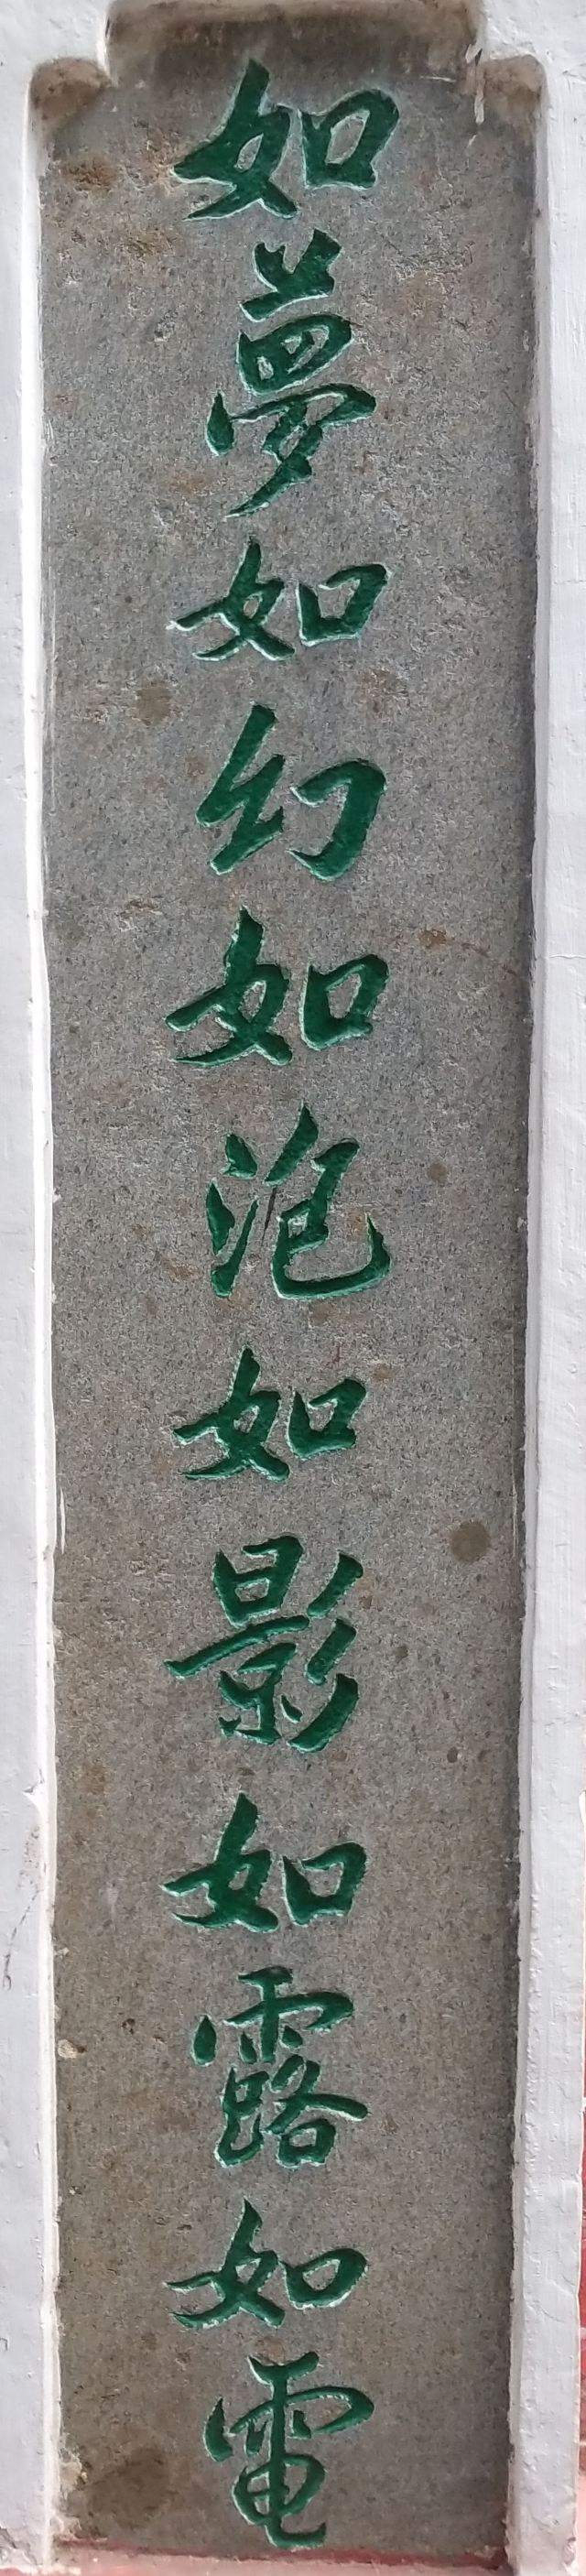 如夢如幻如泡如影如露如電